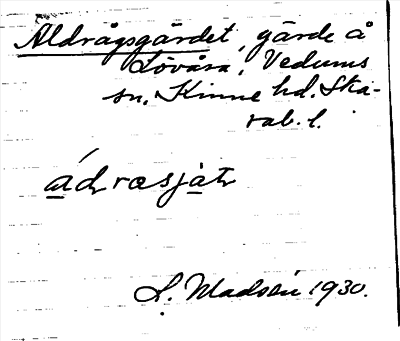 Aldrågsgärdet, gärde å
Lövåsa, Vedums
sn, Kinne hd. Ska-
rab. l.
L. Madsén 1930.